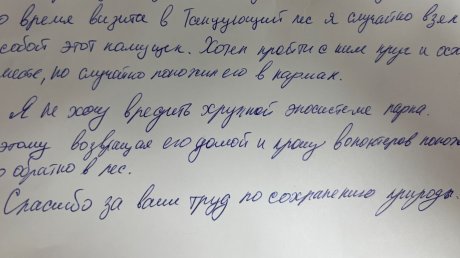 о время визита в Танцующий лес я случайно взял
собой этот камушек. Хотел пройти с ним круг и ост
месте, но случайно положил его в карман.
Я не хочу вредить хрупкой экосистеме парка.
этому возвращаю его домой и прошу волонтеров полож
о обратно в лес.
Спасибо за ваш труд по сохранению природы.